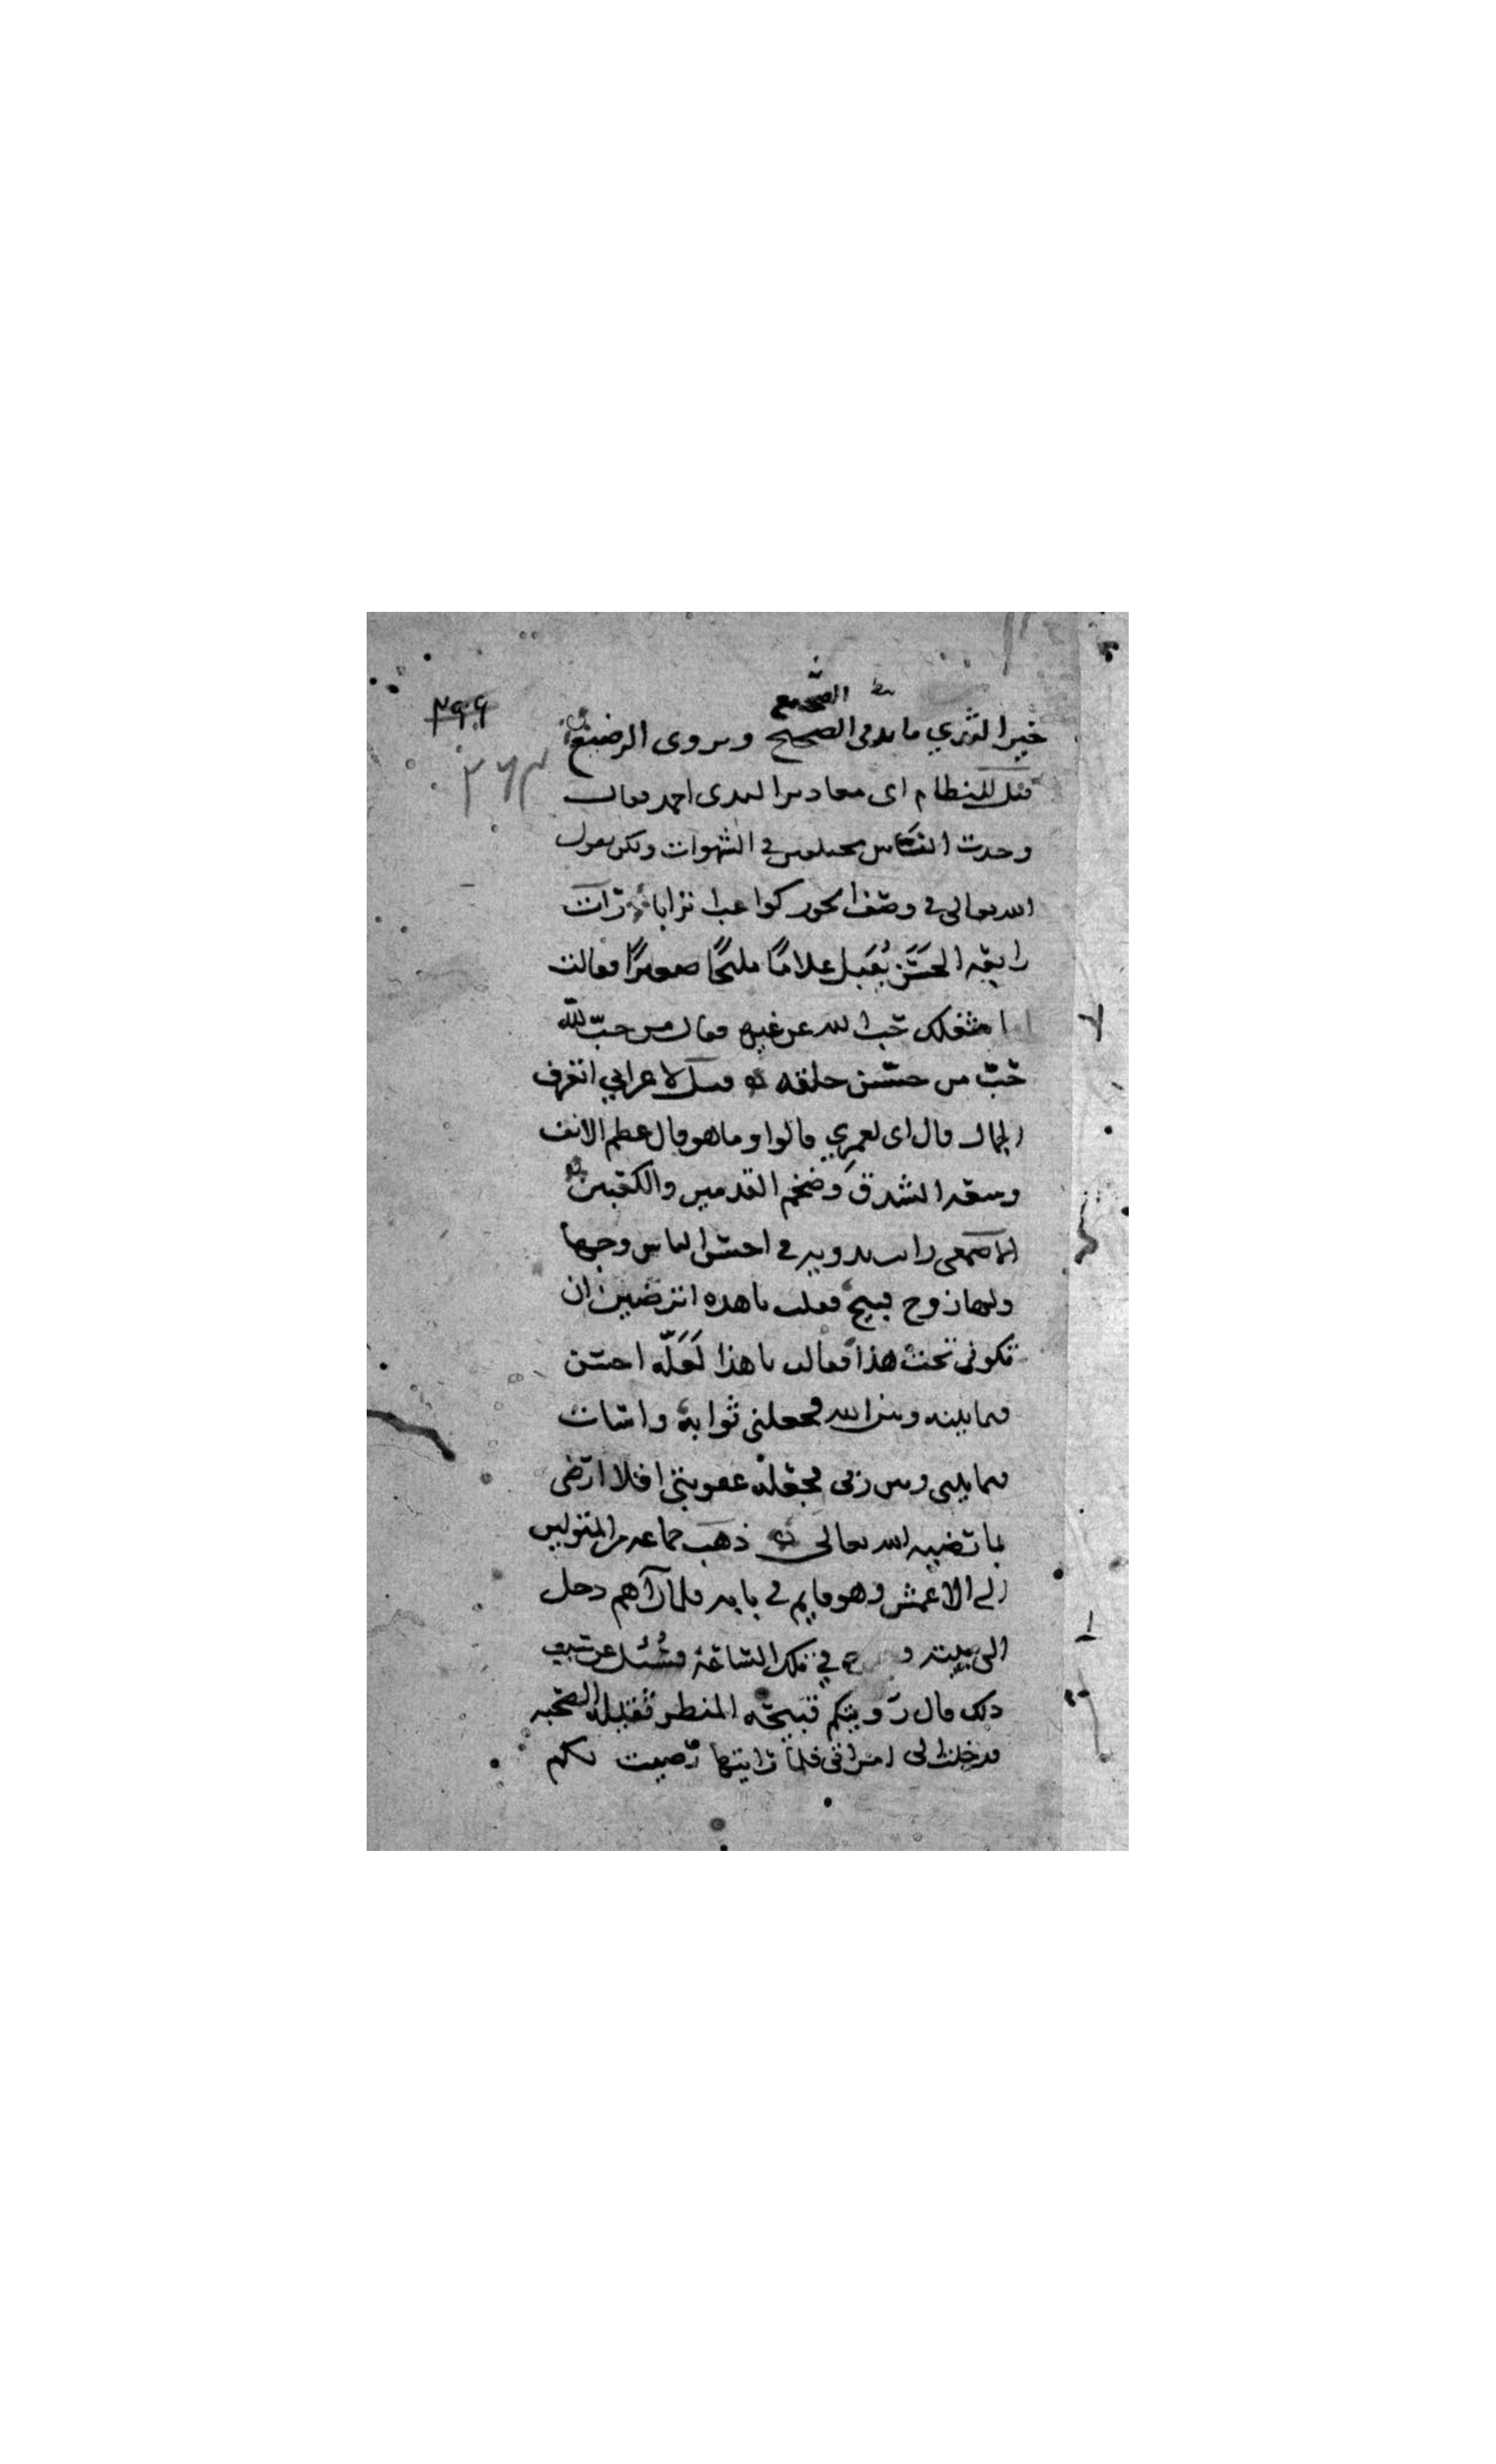 الضجيع
٣٩٩
خير الثدي ما يدفي الضجيع ويروي الرضيع
٢٦٣
قيل للنظام اي مقادير الثدي احمد فقال
وجدت الناس مختلفين في الشهوات ولكن يقول
الله تعالى في وصف الحور كواعب اترابا رات
رابعة الحسن يقبل غلاما مليحا صغيرا فقالت
اما شغلك حب الله عن غيره فقال من حب الله
حب من حسن خلقه قيل لاعرابي اتعرف
الجمال قال اي لعمري قالوا وما هو قال عظم الانف
وسعة الشدق وضخم القدمين والكفين
الاصمعي رايت بدوية في احسن الناس وجها
ولها زوج قبيح فقلت يا هذه اترضين ان
تكوني تحت هذا فقالت يا هذا لعله احسن
فيما بينه وبين الله فجعلني ثوابه واسات
فيما بيني وبين ربي فجعله عقوبتي افلا ارضى
بما رضيه الله تعالى ذهب جماعة من
الى الاعمش وهو قايم في بابه فلما رآهم دخل
الى بيته و في تلك الساعة فسئل عن سبب
ذلك قال رويتكم قبيحة المنظر ثقيلة الصحبة
فدخلت الى امراتي فلما رايتها رضيت بكم